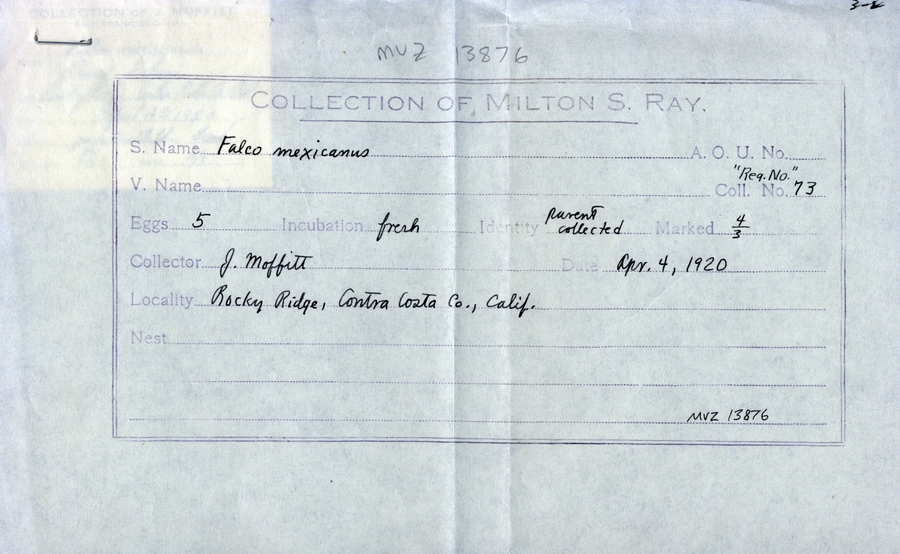 COLLECTION OF J. MOFFITT
3-
MVZ 13876
COLLECTION OF MILTON S. RAY.
S. Name Falco mexicanus A. O. U. No.
"Reg. No."
V. Name Coll. No. 73
Eggs 5 Incubation fresh Identity parent collected Marked 4/3
Collector J. Moffitt Date Apr. 4, 1920
Locality Rocky Ridge, Contra Costa Co., Calif.
Nest
MVZ 13876